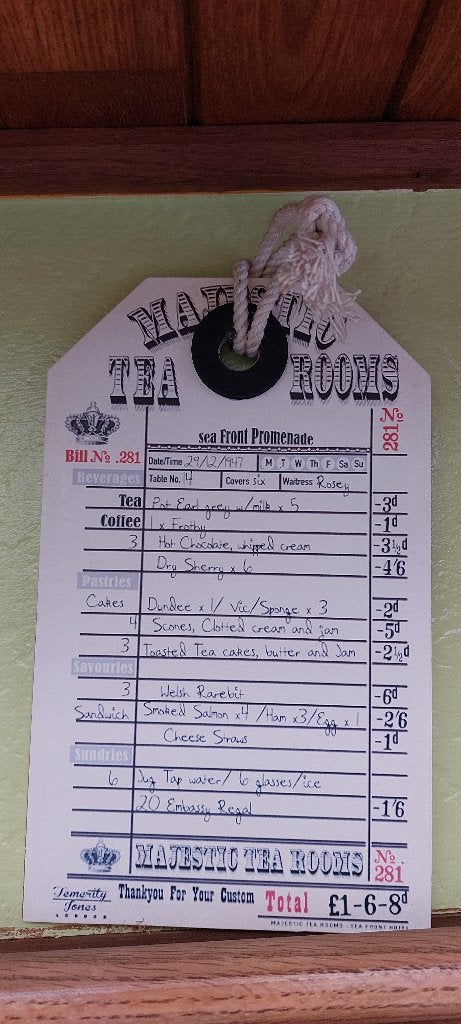 MAJESTIC
TEA ROOMS
sea Front Promenade
No 281
Bill No .281
Date/Time 29/2/1947 M T W Th F Sa Su
Table No. 14 Covers six Waitress Rosey
Beverages
Tea Pot Earl grey w/milk x 5 -3d
Coffee 1 x Frothy -1d
3 Hot Chocolate, whipped cream -3 1/2d
Dry Sherry x 6 -4'6
Pastries
Cakes Dundee x 1/ Vic/Sponge x 3 -2d
4 Scones, Clotted cream and jam -5d
3 Toasted Tea cakes, butter and Jam -2 1/2d
Savouries
3 Welsh Rarebit -6d
Sandwich Smoked Salmon x4 /Ham x3/Egg x 1 -2'6
Cheese Straws -1d
Sundries
6 Jug Tap water/ 6 glasses/ice
20 Embassy Regal -1'6
MAJESTIC TEA ROOMS No. 281
Temerity Jones LONDON
Thankyou For Your Custom Total £1-6-8d
MAJESTIC TEA ROOMS - SEA FRONT HOTEL